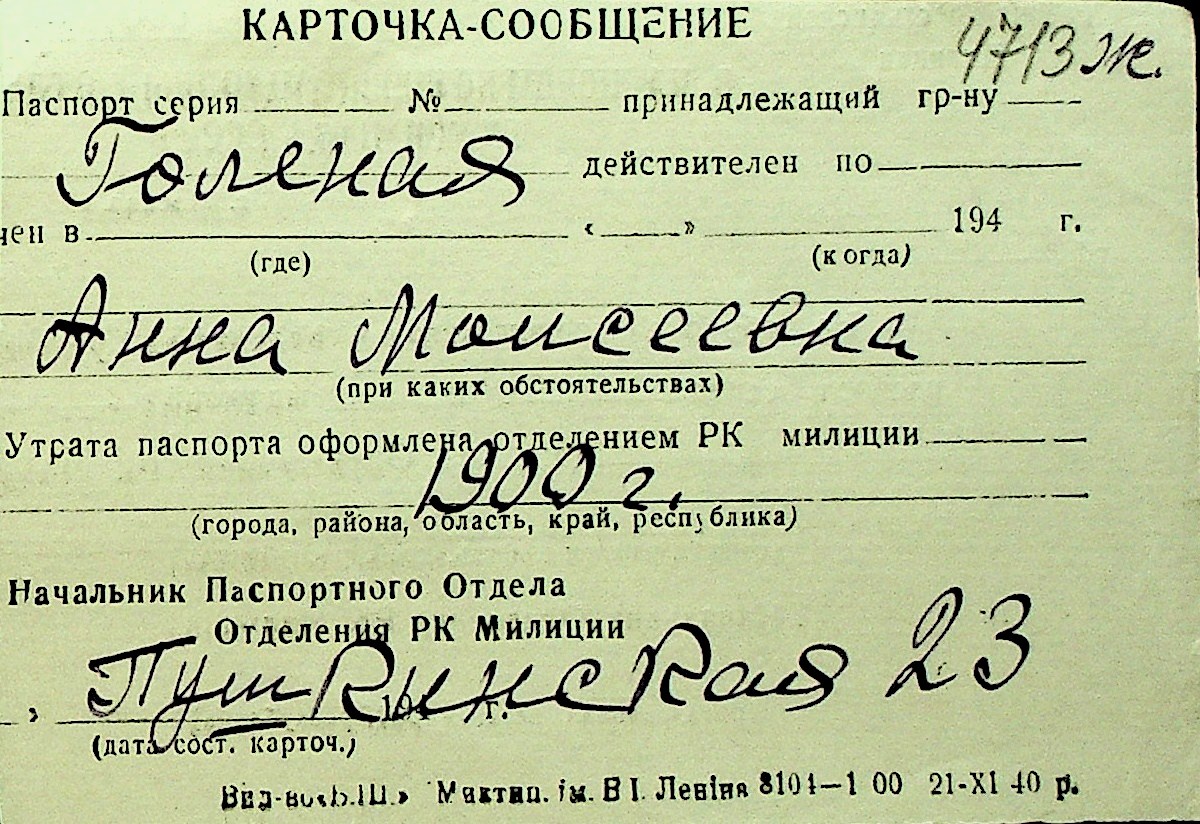 КАРТОЧКА-СООБЩЕНИЕ
4713 ж.
Паспорт серия № принадлежащий гр-ну
Голеная действителен по
чен в « » 194 г.
(где) (когда)
Анна Моисеевна
(при каких обстоятельствах)
Утрата паспорта оформлена отделением РК милиции
1900 г.
(города, района, область, край, республика)
Начальник Паспортного Отдела
Отделения РК Милиции
Пушкинская 23
» 194 г.
(дата сост. карточ.)
ім. В І. Леніна 8104—1 00 21-XI 40 р.